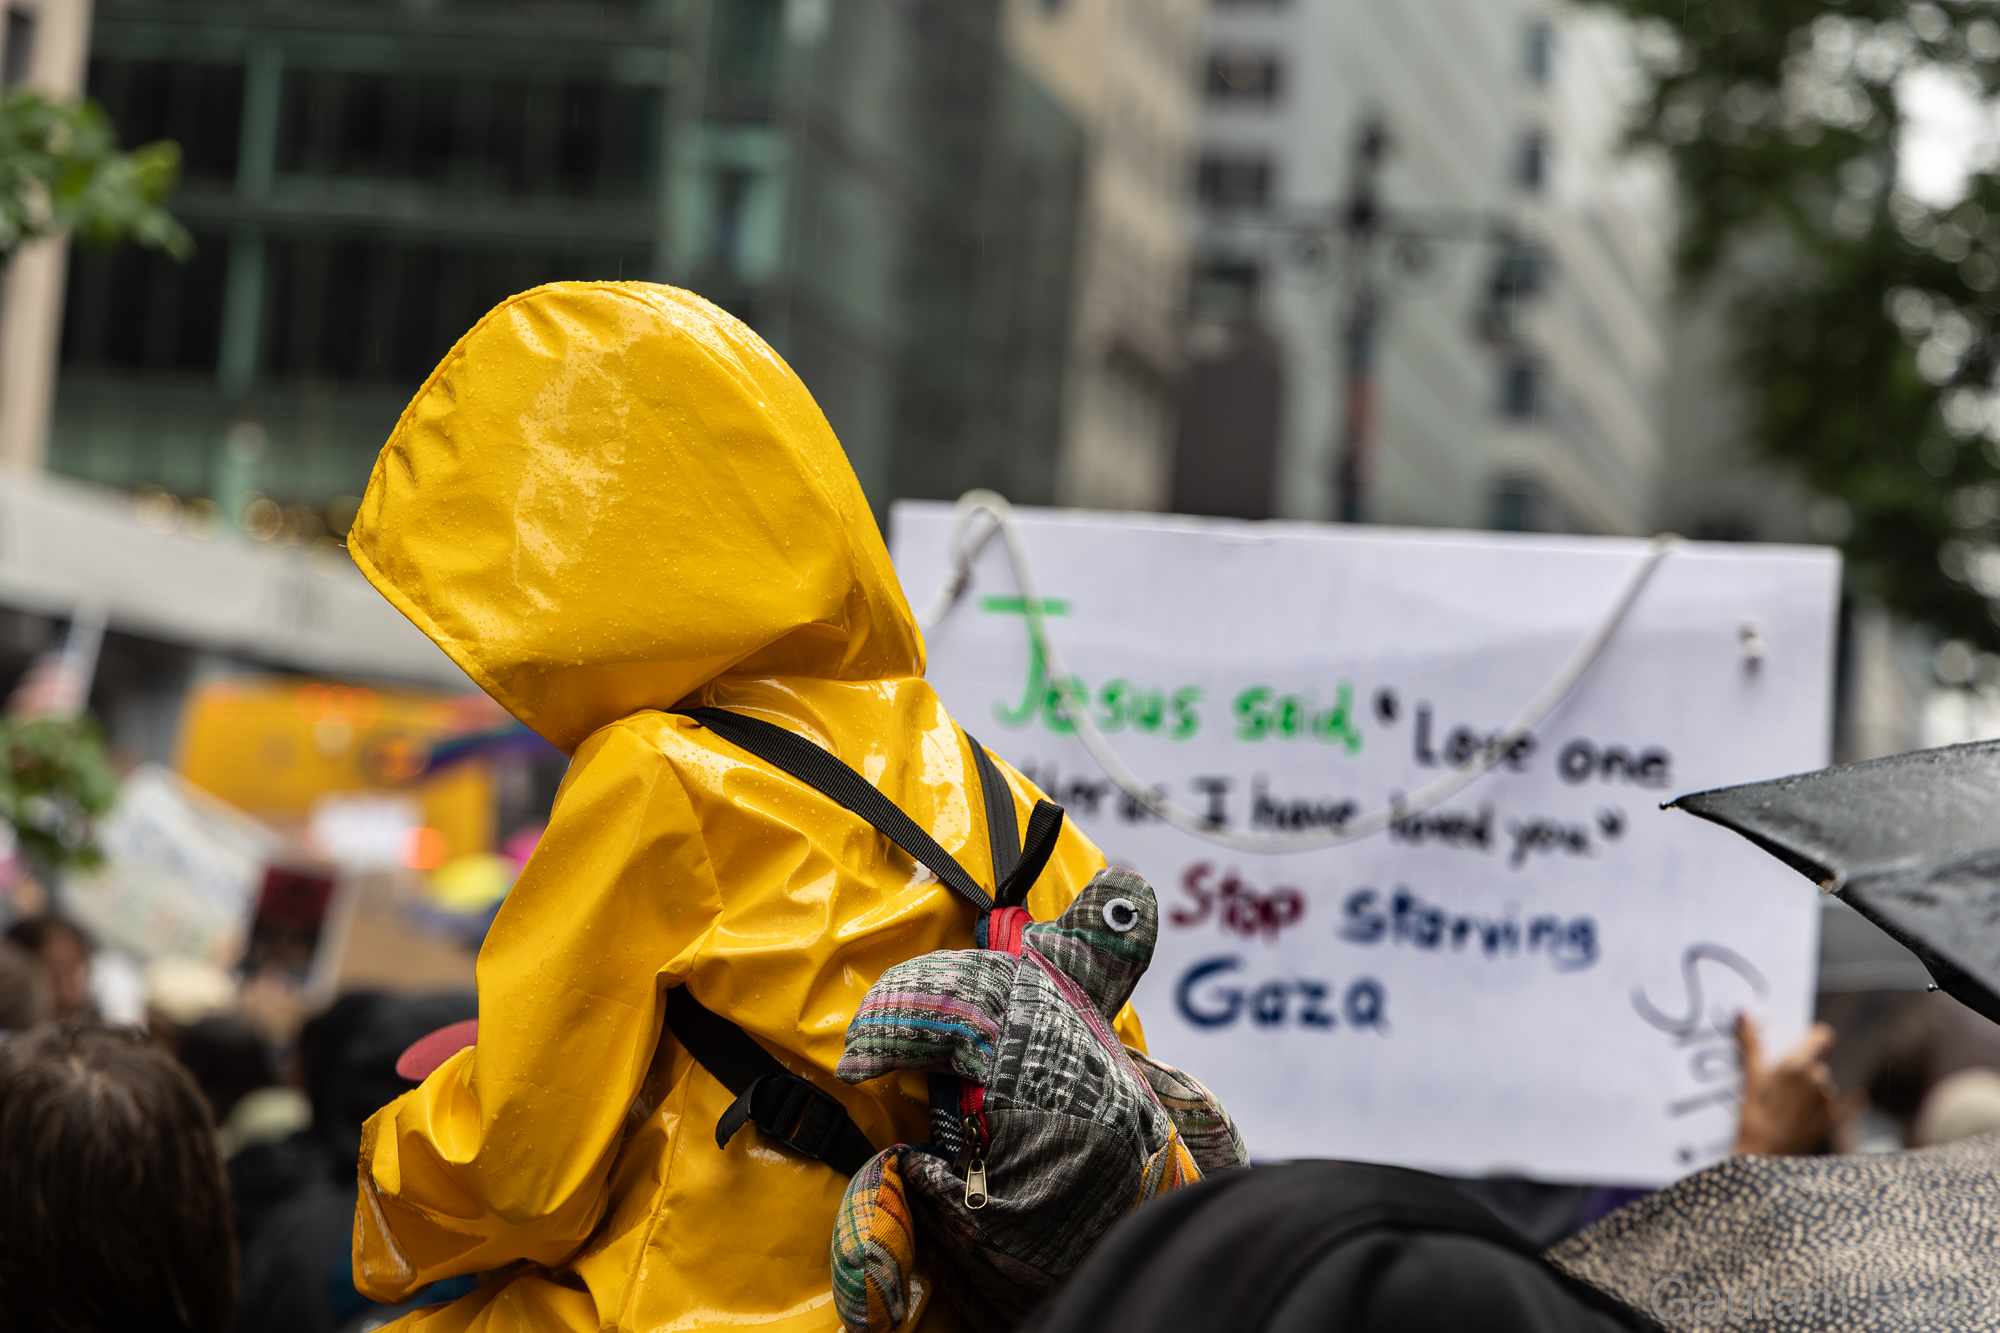 Jesus said, "Love one
as I have loved you."
Stop starving
Gaza
Gautam